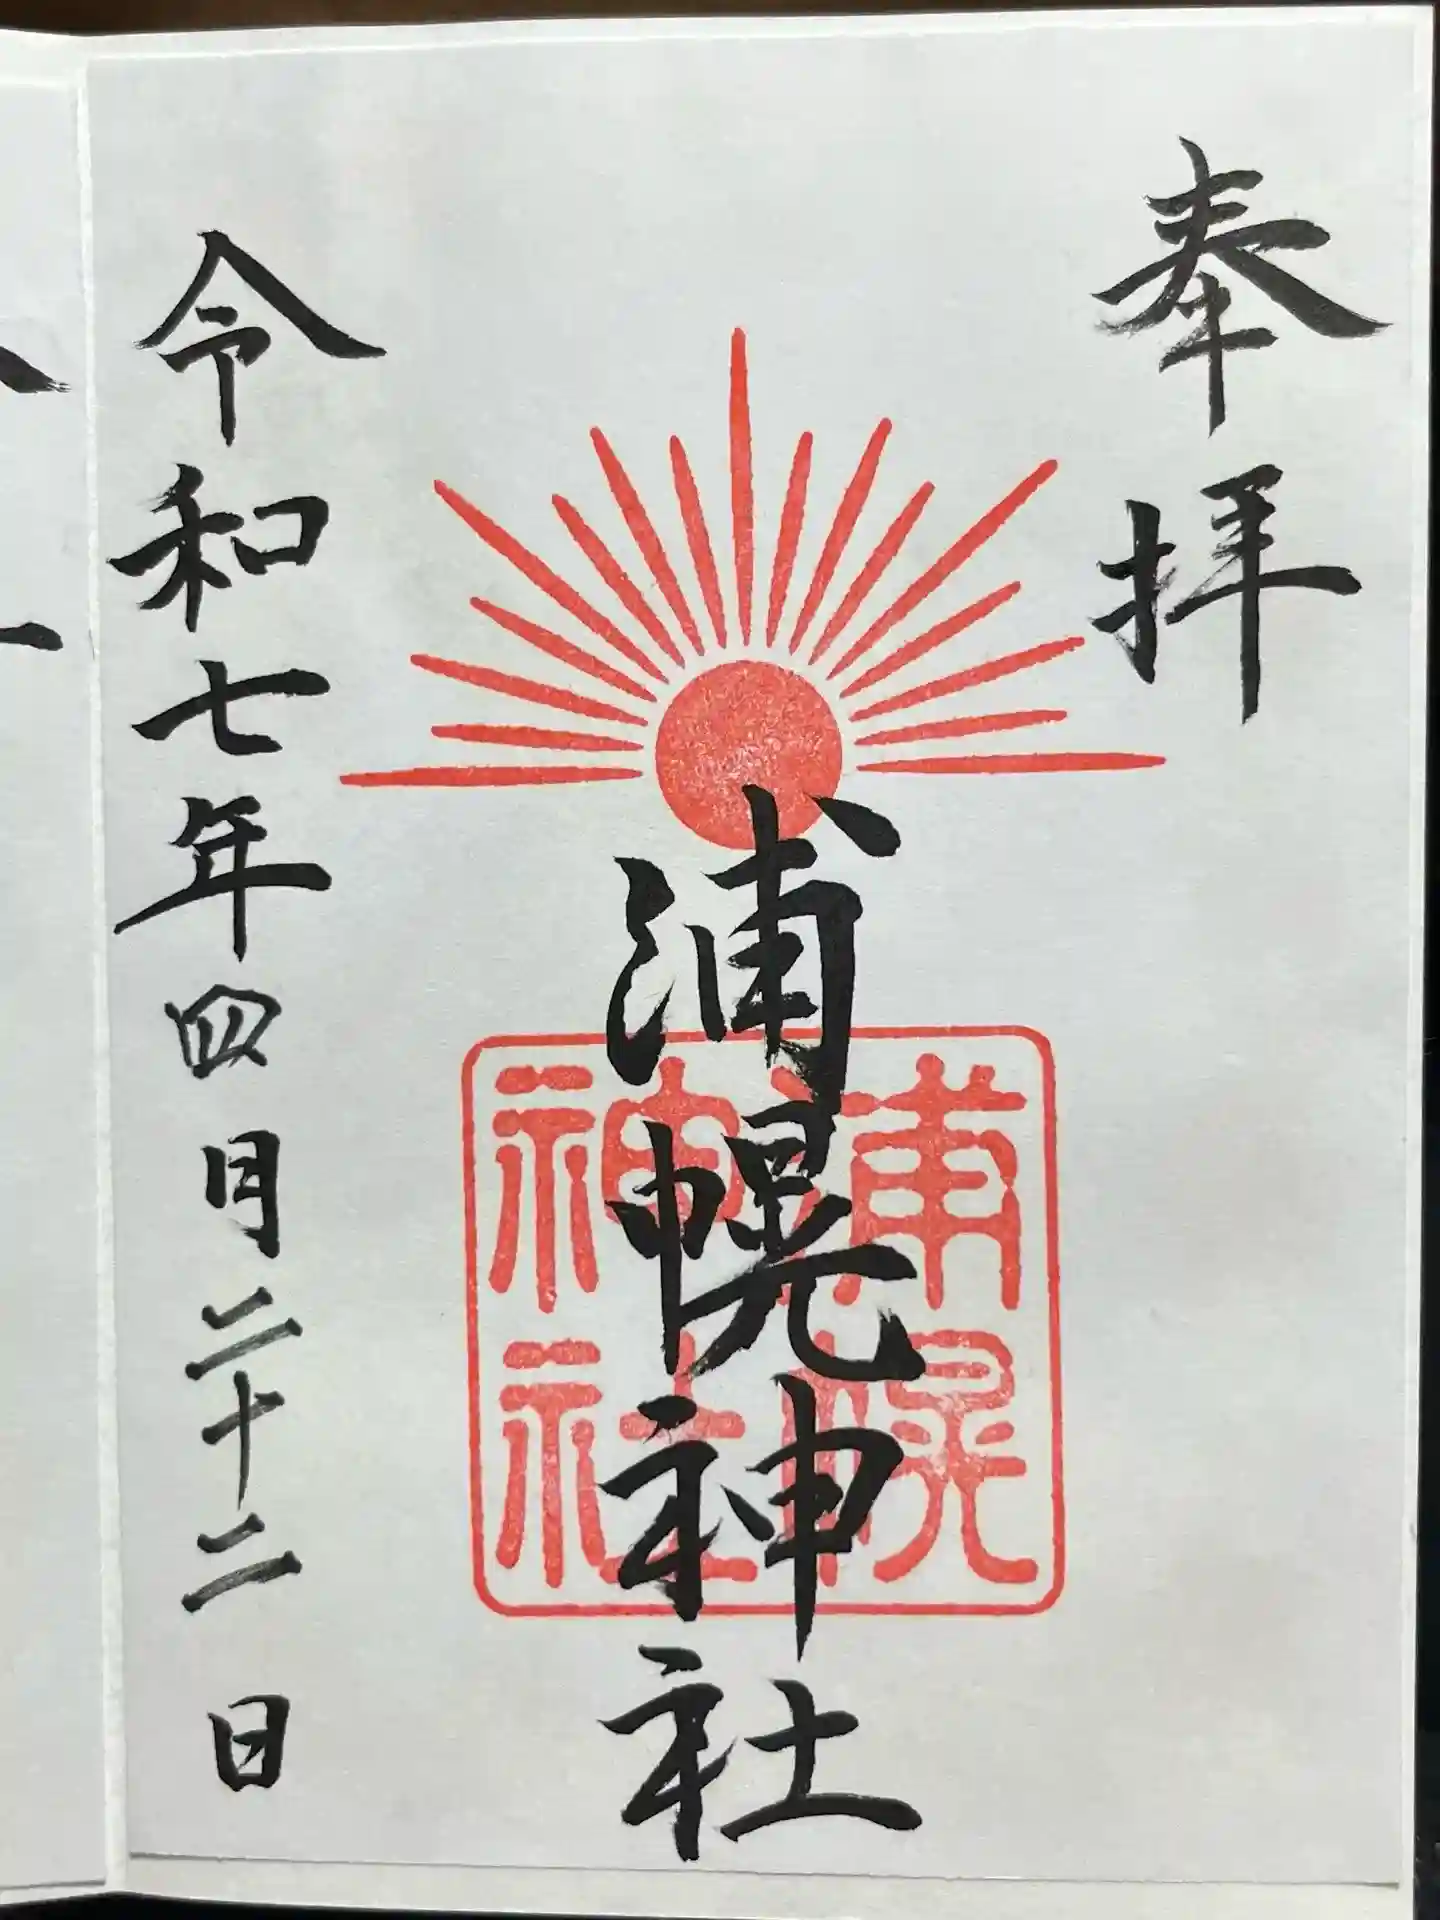 奉拝
浦幌神社
浦幌
神社
令和七年四月二十二日